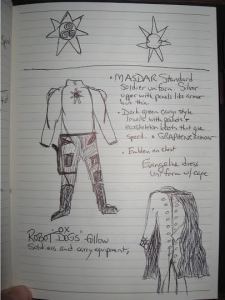 • MASDAR Standard
Soldier uniform. Silver
upper with panels like armor
but thin.
• Dark green cargo style
trousers with pockets +
exoskeleton boots that give
speed. + GRAPHENE Armour
• Emblem on chest
Evangeline dress
Uniform w/ cape
"OX
ROBOT DOGS" follow
Soldiers and carry equipment,